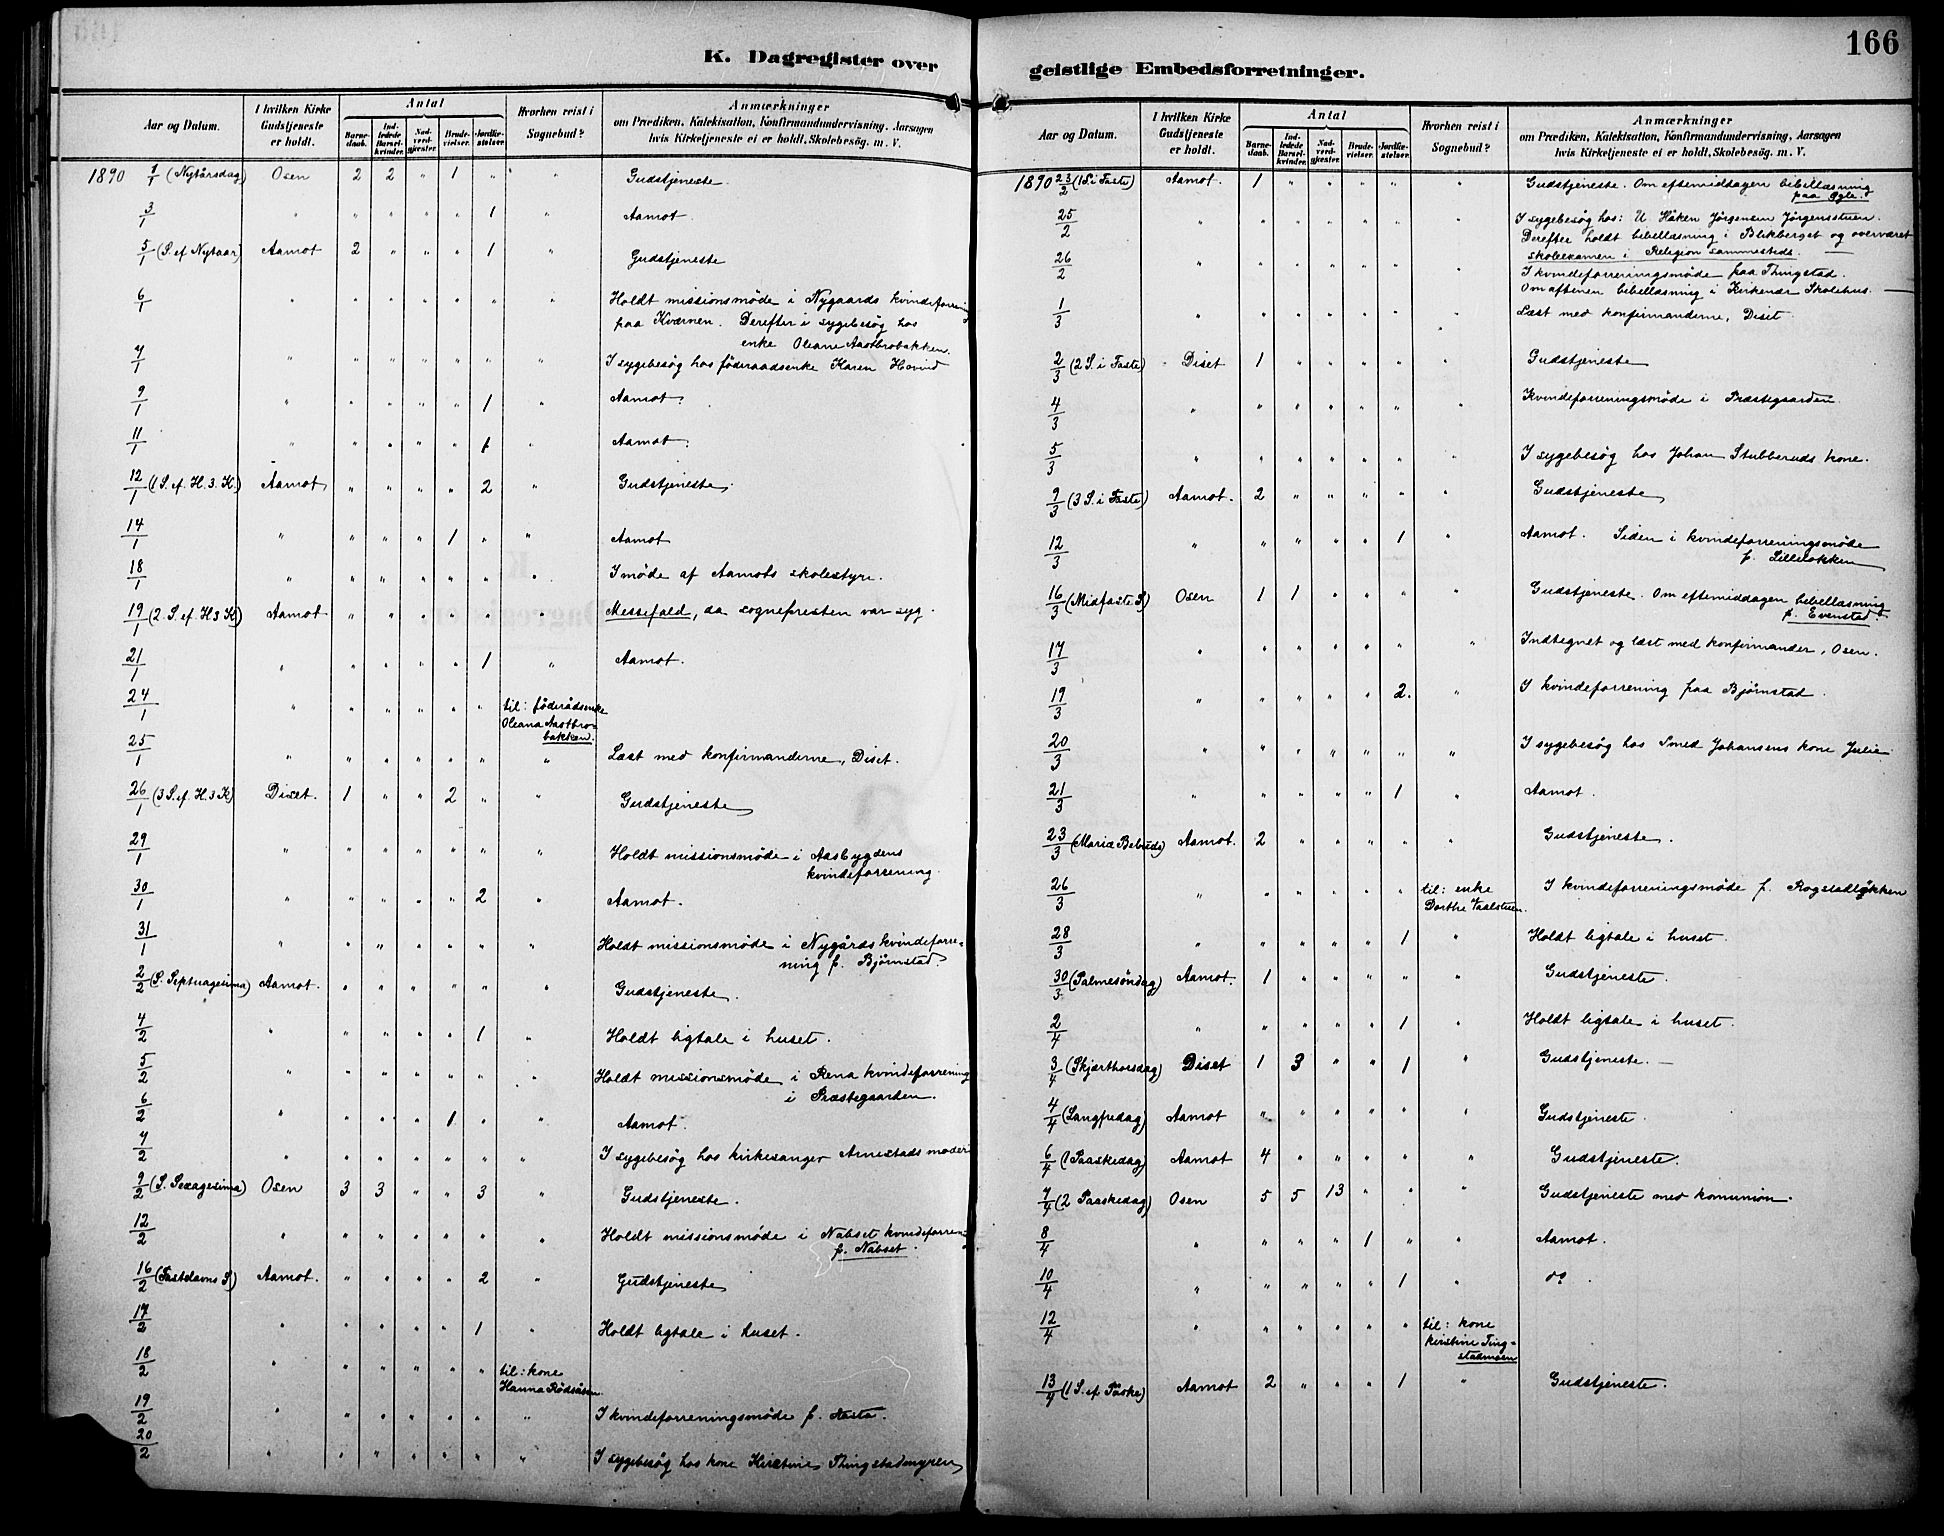 K. Dagregister over
Aar og Datum.
I hvilken Kirke Gudstjeneste er holdt.
Antal
Barnedaab.
Indledede Barselkvinder.
Nadverdgjester.
Brudevielser.
Jordfæstelser.
Hvorhen reist i Sognebud?
Anmærkninger
om Prædiken, Katekisation, Konfirmandundervisning, Aarsagen
hvis Kirketjeneste ei er holdt, Skolebesøg. m. V.
1890 1/1 (Nytårsdag) Osen 2 2 " 1 " " Gudstjeneste.
3/1 " " " " " 1 " Aamot.
5/1 (S. ef Nytaar) Aamot 2 " " " 1 " Gudstjeneste
6/1 " " " " " " " Holdt missionsmøde i Nygaards kvindeforening
paa Kværnen. Derefter i sygebesøg hos
enke Oleane Aastbrobakken.
7/1 " " " " " " " I sygebesøg hos föderaadsenke Karen Hovind
9/1 " " " " " 1 " Aamot.
11/1 " " " " " 1 " Aamot.
12/1 (1 S. ef. H. 3. K.) Aamot " " " " 2 " Gudstjeneste.
14/1 " " " " 1 " " Aamot
18/1 " " " " " " " I møde af Aamots skolestyre.
19/1 (2. S. ef. H 3 K) Aamot " " " " " " Messefald, da sognepresten var syg.
21/1 " " " " " 1 " Aamot.
24/1 " " " " " " til: föderådsenke
Oleana Aastbro-
bakken.
25/1 " " " " " " " Læst med konfirmanderne, Diset.
26/1 (3 S. ef. H. 3 K) Diset. 1 " " 2 " " Gudstjeneste
29/1 " " " " " " " Holdt missionsmøde i Aasbygdens
kvindeforening.
30/1 " " " " " 2 " Aamot.
31/1 " " " " " " " Holdt missionsmøde i Nygårds kvindefore-
ning p. Bjørnstad.
2/2 (S. Septuagesima) Aamot. " " " " " " Gudstjeneste.
4/2 " " " " " 1 " Holdt ligtale i huset.
5/2 " " " " " " " Holdt missionsmøde i Rena kvindeforening
i Præstegaarden.
6/2 " " " " 1 " " Aamot.
7/2 " " " " " " " I sygebesøg hos kirkesanger Arnestads moder
9/2 (S. Sexagesima) Osen 3 3 " " 3 " Gudstjeneste.
12/2 " " " " " " " Holdt missionsmøde i Nabset kvindeforen-
p. Nabset.
16/2 (Fastelavns S) Aamot. " " " " 2 " Gudstjeneste
17/2 " " " " " 1 " Holdt ligtale i huset.
18/2 " " " " " " til: kone
Hanna Rödsåsen.
19/2 " " " " " " " I kvindeforeningsmøde p. Aasta.
20/2 " " " " " " " I sygebesøg hos kone Kirstine Thingstadmyren
166
geistlige Embedsforretninger.
Aar og Datum.
I hvilken Kirke Gudstjeneste er holdt.
Antal
Barnedaab.
Indledede Barselkvinder.
Nadverdgjester.
Brudevielser.
Jordfæstelser.
Hvorhen reist i Sognebud?
Anmærkninger
om Prædiken, Katekisation, Konfirmandundervisning, Aarsagen
hvis Kirketjeneste ei er holdt, Skolebesøg. m. V.
1890 23/2 (1 S. i Faste) Aamot. 1 " " " " " Gudstjeneste. Om eftemiddagen bibellæsning
paa Ygle.
25/2 " " " " " " " I sygebesøg hos: U Håken Jørgensen Jørgensstuen.
Derefter holdt bibellæsning i Blikberget og overværet
skoleexamen i Religion sammesteds.
26/2 " " " " " " " I kvindeforeningsmøde paa Thingstad.
Om aftenen bibellæsning i Kirkenær Skolehus.
1/3 " " " " " " " Læst med konfirmanderne, Diset
2/3 (2 S. i Faste) Diset 1 " " " " " Gudstjeneste
4/3 " " " " " " " Kvindeforeningsmøde i Præstegaarden.
5/3 " " " " " " " I sygebesøg hos Johan Stubberuds kone.
9/3 (3 S. i Faste) Aamot. 2 " " " " " Gudstjeneste
12/3 " " " " " 1 " Aamot. Siden i kvindeforeningsmøde
p. Lilleløkken
16/3 (Midfaste S) Osen 1 1 " " " " Gudstjeneste. Om eftemiddagen bibellæsning
p. Evenstad.
17/3 " " " " " " " Indtegnet og læst med konfirmander, Osen.
19/3 " " " " " 2. " I kvindeforening paa Bjørnstad.
20/3 " " " " " " " I sygebesøg hos Smed Johansens kone Julie
21/3 " " " " " 1 " Aamot.
23/3 (Mariæ Bebud.) Aamot. 2 " " " " " Gudstjeneste.
26/3 " " " " " " til: enke
Dorthe Vaalstuen. I kvindeforeningsmøde p. Rogstadløkken
28/3 " " " " " 1 " Holdt ligtale i huset.
30/3 (Palmesöndag) Aamot. 1 " " " " " Gudstjeneste.
2/4 " " " " " 1 " Holdt ligtale i huset.
3/4 (Skjærthorsdag) Diset 1 3 " " 1 " Gudstjeneste.
4/4 (Langfredag) Aamot " " " " " " Gudstjeneste.
6/4 (1 Paaskedag) Aamot 4 " " " " " Gudstjeneste.
7/4 (2 Paaskedag) Osen 5 5 13 " " " Gudstjeneste med komunion.
8/4 " " " " 1 " " Aamot.
10/4 " " " " " 1 " do.
12/4 " " " " " " til: kone
Kirstine Ting-
stadmoen
13/4 (1 S. ef. Påske) Aamot 2 " " " 1 " Gudstjeneste.